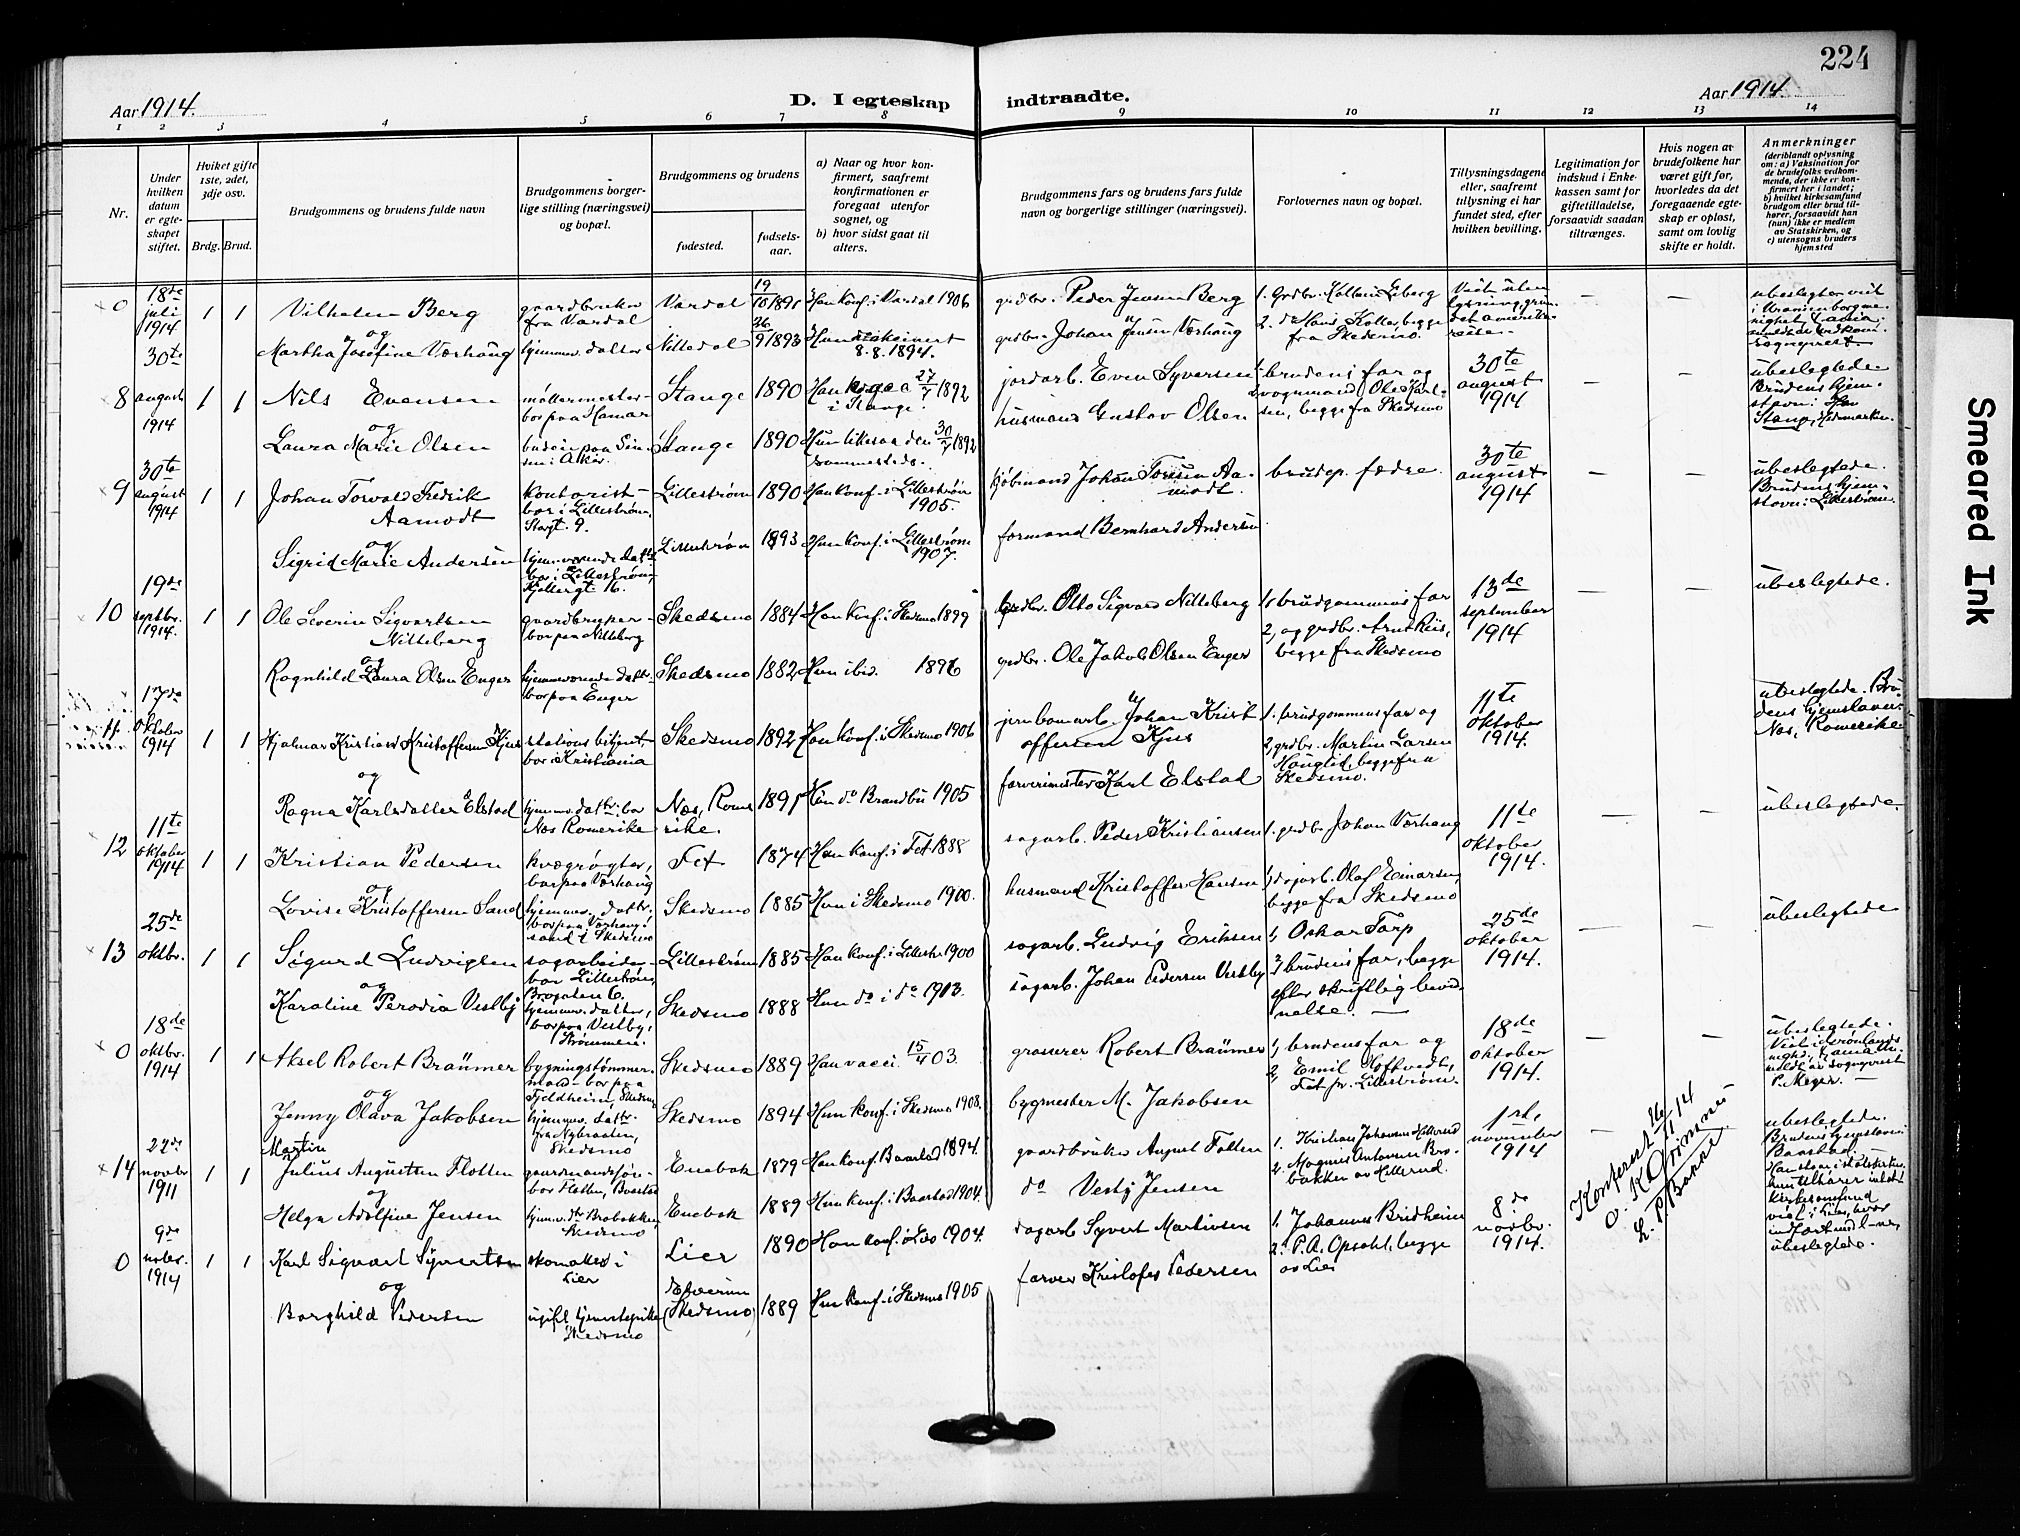 224
Aar 1914.
D. I egteskap indtraadte.
Aar 1914.
1 2 3 4 5 6 7 8 9 10 11 12 13 14
Nr.
Under hvilken datum er egteskapet stiftet.
Hvilket gifte 1ste, 2det, 3dje osv.
Brdg. Brud.
Brudgommens og brudens fulde navn
Brudgommens borgerlige stilling (næringsvei) og bopæl.
Brudgommens og brudens
fødested.
fødselsaar.
a) Naar og hvor konfirmert, saafremt konfirmationen er foregaat utenfor sognet, og
b) hvor sidst gaat til alters.
Brudgommens fars og brudens fars fulde navn og borgerlige stillinger (næringsvei).
Forlovernes navn og bopæl.
Tillysningsdagene eller, saafremt tillysning ei har fundet sted, efter hvilken bevilling.
Legitimation for indskud i Enkekassen samt for giftetilladelse, forsaavidt saadan tiltrænges.
Hvis nogen av brudefolkene har været gift før, hvorledes da det foregaaende egteskap er opløst, samt om lovlig skifte er holdt.
Anmerkninger
(deriblandt oplysning om: a) Vaksination for de brudefolks vedkommende, der ikke er konfirmert her i landet;
b) hvilket kirkesamfund brudgom eller brud tilhører, forsaavidt han (hun) ikke er medlem av Statskirken, og
c) utensogns bruders hjemsted
0 18de juli 1914 1 1 Vilhelm Berg gaardbruker fra Vardal Vardal 19/10 1891 Han konf. i Vardal 1906 grdbr. Peder Jensen Berg
og
Martha Josefine Værhaug hjemmev. datter Nittedal 26/9 1893 grdbr. Johan Jensen Værhaug
8 30te august 1914 1 1 Nils Evensen møllermester bor paa Hamar Stange 1890 27/7 1892 i Stange. jordarb. Even Syversen brudens far og vognmand Ole Karlsen, begge fra Skedsmo 30te august 1914 ubeslegtede Brudens hjemstavn:
og
Laura Marie Olsen Stange 1890 Hun likesaa den 30/7 1892 sammesteds. husmand Gustav Olsen
9 30te august 1914 1 1 Johan Torvald Fredrik Aamodt kontorist bor i Lillestrøm, Storgt. 9. Lillestrøm 1890 Han konf. i Lillestrøm 1905. kjøbmand Johan Aamodt. brudep. fædre. 30te august 1914 ubeslegtede. Brudens hjemstavn: Lillestrøm.
og
Sigrid Marie Andersen hjemmeværende datter bor i Lillestrøm, 16. Lillestrøm 1893 Hun konf. i Lillestrøm 1907. formand Bernhard Andersen
10 19de septbr. 1914. 1 1 Ole Severin Sigvartsen Nitteberg gaardbruker bor paa Nitteberg Skedsmo 1884 Han konf. i Skedsmo 1899 grdbr. Otto Sigvard Nitteberg 1, brudgommens far 2, og grdbr. Arnt Riis, begge fra Skedsmo 13de september 1914 ubeslegtede.
og
Ragnhild Laura Olsen Enger hjemmeværende datter bor paa Enger Skedsmo 1882 Hun ibid. 1896 grdbr. Ole Jakob Olsen Enger
11 17de oktober 1914 1 1 Hjalmar Kristian Kristoffersen Kjus stationsbetjent, bor i Kristiania Skedsmo 1892 Han konf. i Skedsmo 1906 jernbanearb. Johan Kristoffersen Kjus 1. brudgommens far og 2, grdbr. Martin Larsen Haugtid, begge fra Skedsmo. 11te oktober 1914. ubeslegtede. Brudens hjemstavn: Nes, Romerike
og
Ragna Karlsdatter Elstad hjemmv. datter, bor Nes Romerike Nes, Romerike. 1891 Hun do Brandbu 1905 farverimester Karl Elstad
12 11te oktober 1914 1 1 Kristian Pedersen kvægrøgter, bor paa Værhaug Fet 1874 Han konf. i Fet 1888 sagarb. Peder Kristiansen 1. grdbr. Johan Værhaug 11te oktober 1914. ubeslegtede.
og
Lovise Kristoffersen Sand hjemmev. datter. bor paa Skedsmo 1885 Hun i Skedsmo 1900. husmand Kristoffer Hansen dagarb. Olaf Einarsen, begge fra Skedsmo
13 25de oktbr. 1 1 Sigurd Ludvigsen sagarbeider bor Lillestrøm, Brogaten 6. Lillestrøm 1885 Han konf. i Lillestr. 1900 sagarb. Ludvig Eriksen 1, Oskar Torp 2, brudens far, begge efter skriftlig bevidnelse. 25de oktober 1914. ubeslegtede
og
Karoline Perodia Vestby hjemmev. datter, bor paa Vestby, Strømmen. Skedsmo 1888 Hun do i do 1903. sagarb. Johan Pedersen Vestby
0 18de oktbr. 1914 1 1 Aksel Robert Braümer bygningstømmermand bor paa Fjeldheim, Skedsmo Skedsmo 1889 Han vacc. 15/4 03. grosserer Robert Braümer 1, brudens far og 2, Emil Hoftvedt, Fet pr. Lillestrøm. 18de oktober 1914. ubeslegtede.
og
Jenny Olava Jakobsen hjemmev. dattr. Skedsmo Skedsmo 1894 Hun konf. i Skedsmo 1908. bygmester M. Jakobsen
14 22de novbr 1911 1 1 Martin Julius Augustsen Flotten gaardmandssøn bor Flotten, Baastad Enebak 1879 Han konf. Baastad 1894. gaardbruker August Flotten 1. Kristian Johansen Hillerud 2. Magnus Antonsen Brobakken av Hillerud. 1ste november 1914 ubeslegtede. Brudens hjemstavn: Baastad.
og
Helga Adolfine Jensen hjemv. dtr Brobakken Skedsmo Enebak 1889 Hun konf. i Baastad 1904. do Vesty Jensen
Konferert 26/11 14
0 9de novbr. 1914 1 1 Karl Sigvart Syvertsen skomaker i Lier Lier 1890 Han konf. i Lier 1904. dagarb. Syvert Martinsen 1, Johannes Bridheim 2. P.A. Opsahl, begge av Lier 8de novbr. 1914. ubeslegtede.
og
Borghild Pedersen ugift tjenestepike Skedsmo Elverum (Skedsmo) 1889 Hun konf. i Skedsmo 1905 farver Kristofer Pedersen
Smeared Ink